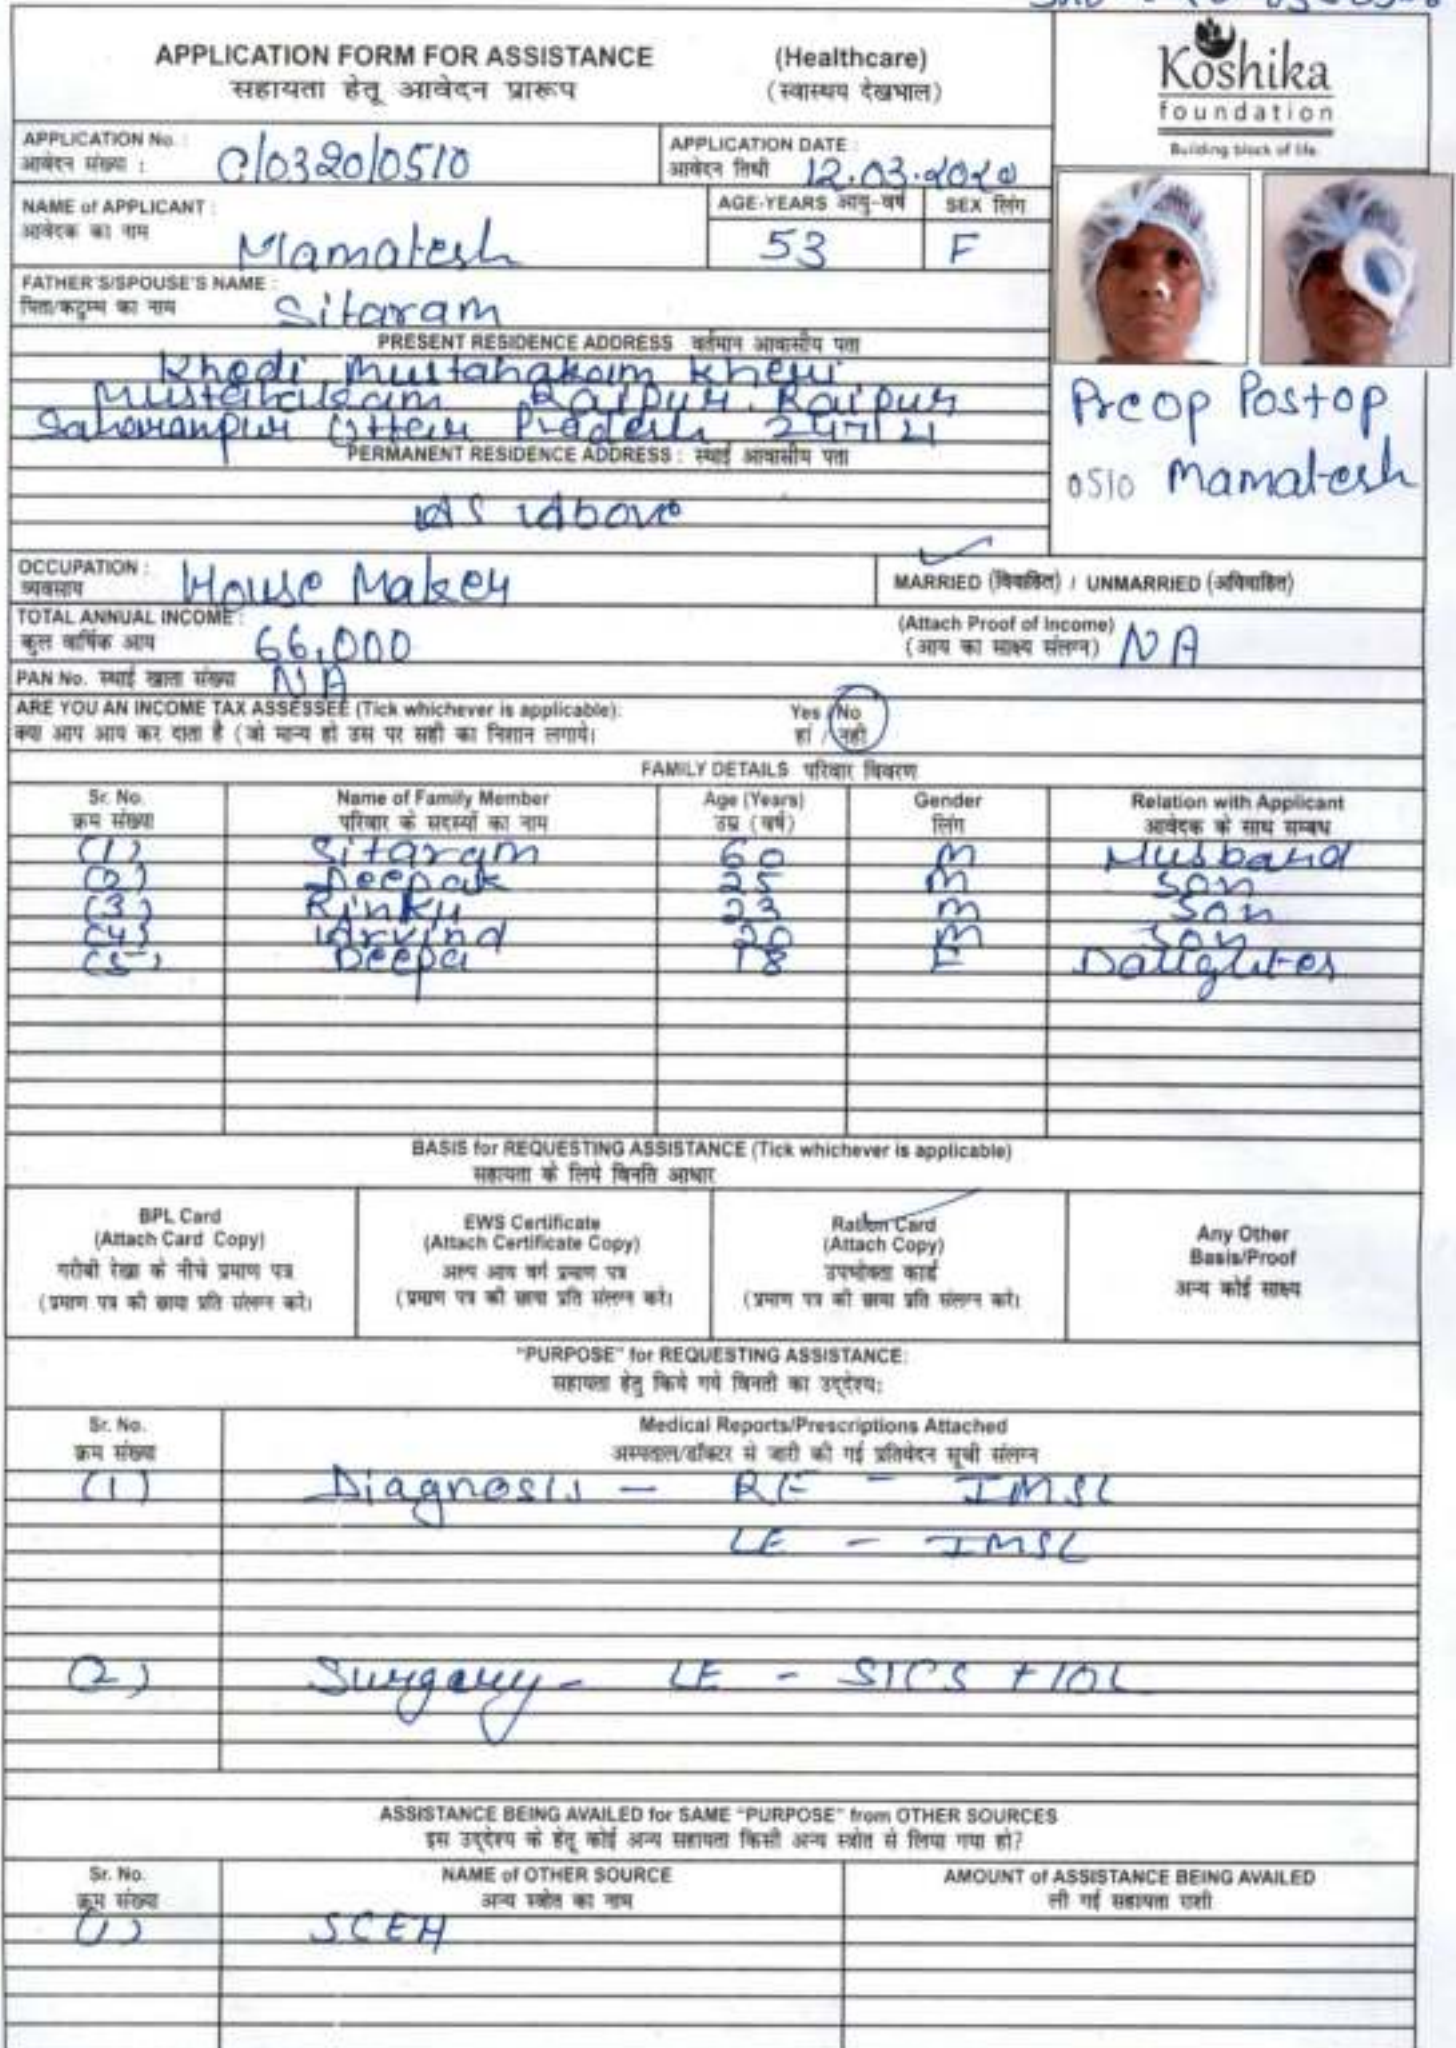 APPLICATION FORM FOR ASSISTANCE (Healthcare)
सहायता हेतू आवेदन प्रारूप (स्वास्थय देखभाल)
Koshika
foundation
Building block of life.
APPLICATION No. : C/0320/0510
आवेदन संख्या :
APPLICATION DATE : 12.03.2020
आवेदन तिथी
NAME of APPLICANT : Mamatesh
आवेदक का नाम
AGE-YEARS आयु-वर्ष 53
SEX लिंग F
FATHER'S/SPOUSE'S NAME : Sitaram
पिता/कटुम्ब का नाम
PRESENT RESIDENCE ADDRESS वर्तमान आवासीय पता
Khedi Mustahakam Kheri
Mustahakam Raipur Raipur
Saharanpur Uttar Pradesh 247121
PERMANENT RESIDENCE ADDRESS : स्थाई आवासीय पता
As Above
Preop Postop
0510 Mamatesh
OCCUPATION : House Maker
व्यवसाय
MARRIED (विवाहित) / UNMARRIED (अविवाहित)
TOTAL ANNUAL INCOME : 66,000
कुल वार्षिक आय
(Attach Proof of Income) NA
(आय का साक्ष्य संलग्न)
PAN No. स्थाई खाता संख्या NA
ARE YOU AN INCOME TAX ASSESSEE (Tick whichever is applicable): Yes / No
क्या आप आय कर दाता है (जो मान्य हो उस पर सही का निशान लगाये। हां / नही
FAMILY DETAILS परिवार विवरण
Sr. No. Name of Family Member Age (Years) Gender Relation with Applicant
क्रम संख्या परिवार के सदस्यों का नाम उम्र (वर्ष) लिंग आवेदक के साथ सम्बध
(1) Sitaram 60 M Husband
(2) Deepak 25 M Son
(3) Rinku 23 M Son
(4) Arvind 20 M Son
(5) Deepa 18 F Daughter
BASIS for REQUESTING ASSISTANCE (Tick whichever is applicable)
सहायता के लिये विनति आधार
BPL Card
(Attach Card Copy)
गरीबी रेखा के नीचे प्रमाण पत्र
(प्रमाण पत्र की छाया प्रति संलग्न करे।
EWS Certificate
(Attach Certificate Copy)
अल्प आय वर्ग प्रमाण पत्र
(प्रमाण पत्र की छाया प्रति संलग्न करे।
Ration Card
(Attach Copy)
उपभोक्ता कार्ड
(प्रमाण पत्र की छाया प्रति संलग्न करे।
Any Other
Basis/Proof
अन्य कोई साक्ष्य
"PURPOSE" for REQUESTING ASSISTANCE:
सहायता हेतु किये गये विनती का उद्देश्य:
Sr. No. Medical Reports/Prescriptions Attached
क्रम संख्या अस्पताल/डॉक्टर से जारी की गई प्रतिवेदन सूची संलग्न
(1) Diagnosis - RE - IMSC
LE - IMSC
(2) Surgary - LE - SICS + IOL
ASSISTANCE BEING AVAILED for SAME "PURPOSE" from OTHER SOURCES
इस उद्देश्य के हेतू कोई अन्य सहायता किसी अन्य स्त्रोत से लिया गया हो?
Sr. No. NAME of OTHER SOURCE AMOUNT of ASSISTANCE BEING AVAILED
क्रम संख्या अन्य स्त्रोत का नाम ली गई सहायता राशी
(1) SCEH